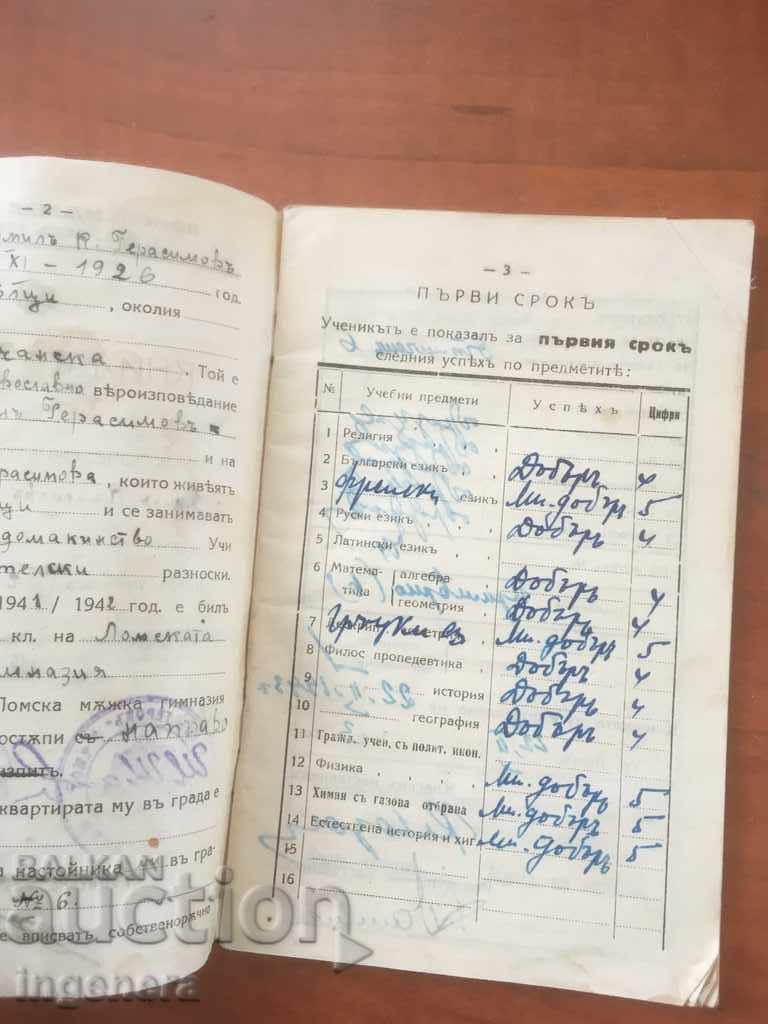 — 2 —
К. Герасимовъ
XI — 1926 год.
, околия
Той е
вѣроизповедание
Герасимовъ
и на
, които живѣятъ
и се занимаватъ
домакинство Учи
разноски.
1941/1942 год. е билъ
кл. на Ломската
Ломска мѫжка гимназия
съ направо
квартирата му въ града е
настойника му въ гра-
№ 6.
вписватъ собственорѫчно
— 3 —
ПЪРВИ СРОКЪ
Ученикътъ е показалъ за първия срокъ
следния успѣхъ по предметитѣ:
№ Учебни предмети Успѣхъ Цифри
1 Религия
2 Български езикъ Добъръ 4
3 Френски езикъ Мн. добъръ 5
4 Руски езикъ Добъръ 4
5 Латински езикъ
6 Матема- алгебра Добъръ 4
тика геометрия Добъръ 4
7 Мн. добъръ 5
8 Филос. пропедевтика Добъръ 4
9 история Добъръ 4
10 география Добъръ 4
11 Гражд. учен. съ полит. икон.
12 Физика Мн. добъръ 5
13 Химия съ газова отбрана Мн. добъръ 5
14 Естествена история и хиг. Мн. добъръ 5
15
16
BALKAN
auction
ingenera